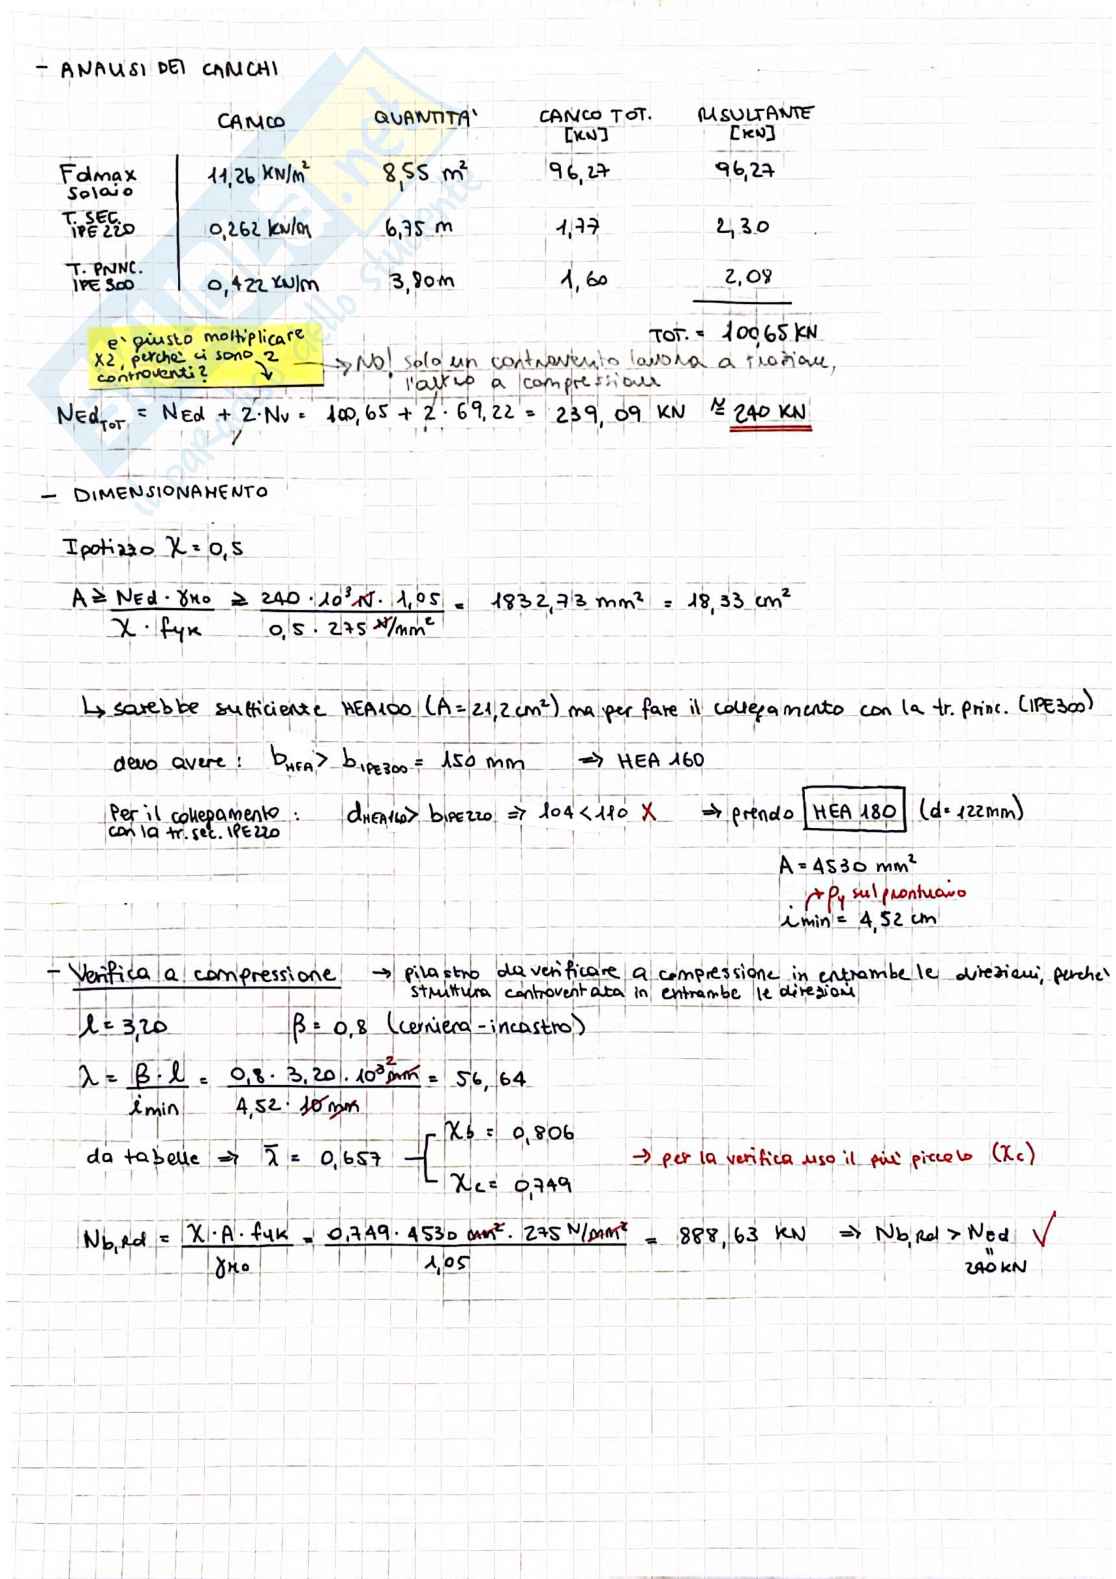 - ANALISI DEI CARICHI
CARICO QUANTITA' CARICO TOT. [KN] RISULTANTE [KN]
Fdmax solaio 11,26 KN/m² 8,55 m² 96,27 96,27
T. SEC. IPE 220 0,262 KN/m 6,75 m 1,77 2,30
T. PRINC. IPE 300 0,422 KN/m 3,80 m 1,60 2,08
TOT. = 100,65 KN
e' giusto moltiplicare
x2, perche' ci sono 2
controventi?
→ NO! Solo un controvento lavora a trazione,
l'altro a compressione
NEd TOT = NEd + 2·Nv = 100,65 + 2·69,22 = 239,09 KN ≅ 240 KN
- DIMENSIONAMENTO
Ipotizzo χ = 0,5
A ≥ NEd · γM0 / χ · fyk ≥ 240 · 10³ N · 1,05 / 0,5 · 275 N/mm² = 1832,73 mm² = 18,33 cm²
↳ sarebbe sufficiente HEA100 (A = 21,2 cm²) ma per fare il collegamento con la tr. princ. (IPE300)
devo avere: bHEA > bIPE300 = 150 mm ⇒ HEA 160
Per il collegamento con la tr. sec. IPE220 : dHEA160 > bIPE220 ⇒ 104 < 110 X ⇒ prendo HEA 180 (d = 122mm)
A = 4530 mm²
→ ρy sul prontuario
imin = 4,52 cm
- Verifica a compressione → pilastro da verificare a compressione in entrambe le direzioni, perche'
struttura controventata in entrambe le direzioni
l = 3,20 β = 0,8 (cerniera-incastro)
λ = β · l / imin = 0,8 · 3,20 · 10³² mm / 4,52 · 10 mm = 56,64
da tabelle ⇒ λ̄ = 0,657
χb = 0,806
χc = 0,749
→ per la verifica uso il piu' piccolo (χc)
Nb,Rd = χ · A · fyk / γM0 = 0,749 · 4530 mm² · 275 N/mm² / 1,05 = 888,63 KN ⇒ Nb,Rd > NEd ✓
= 240 KN
.net
dello studente